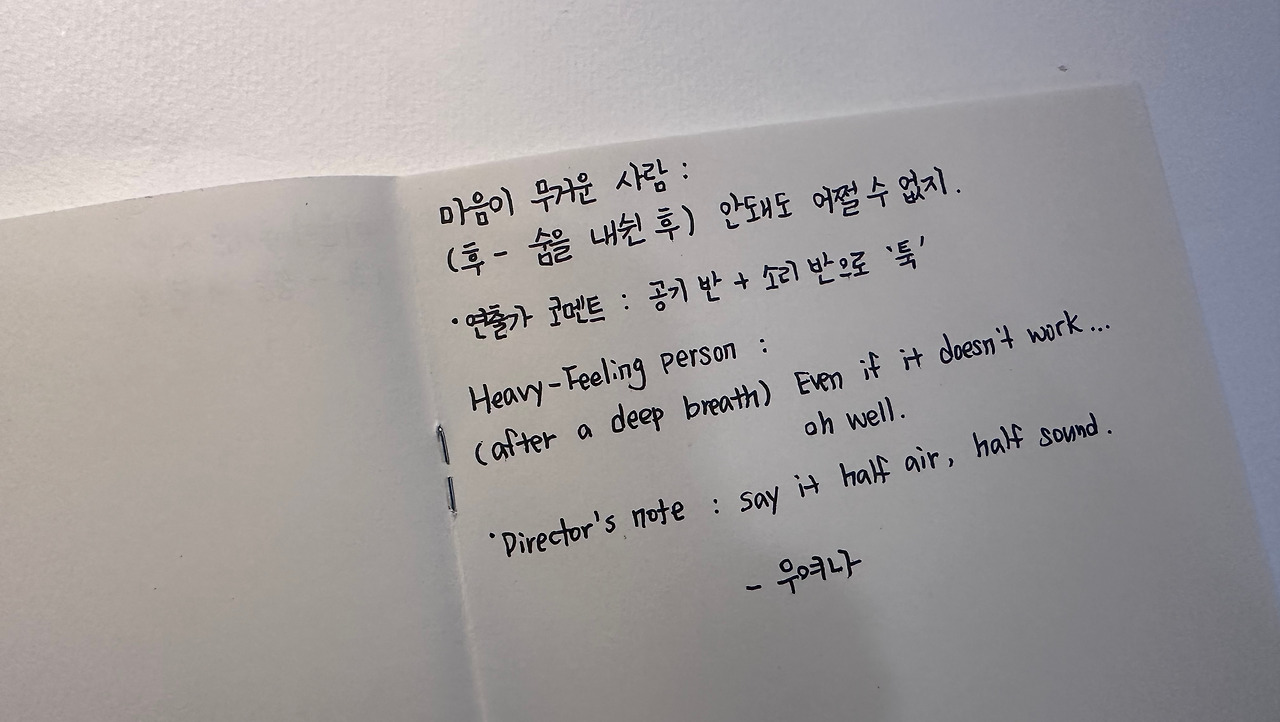 마음이 무거운 사람 :
(후 - 숨을 내쉰 후) 안돼도 어쩔 수 없지.
· 연출가 코멘트 : 공기 반 + 소리 반으로 '툭'
Heavy-Feeling person :
(after a deep breath) Even if it doesn't work...
oh well.
· Director's note : say it half air, half sound.
- 우여키나